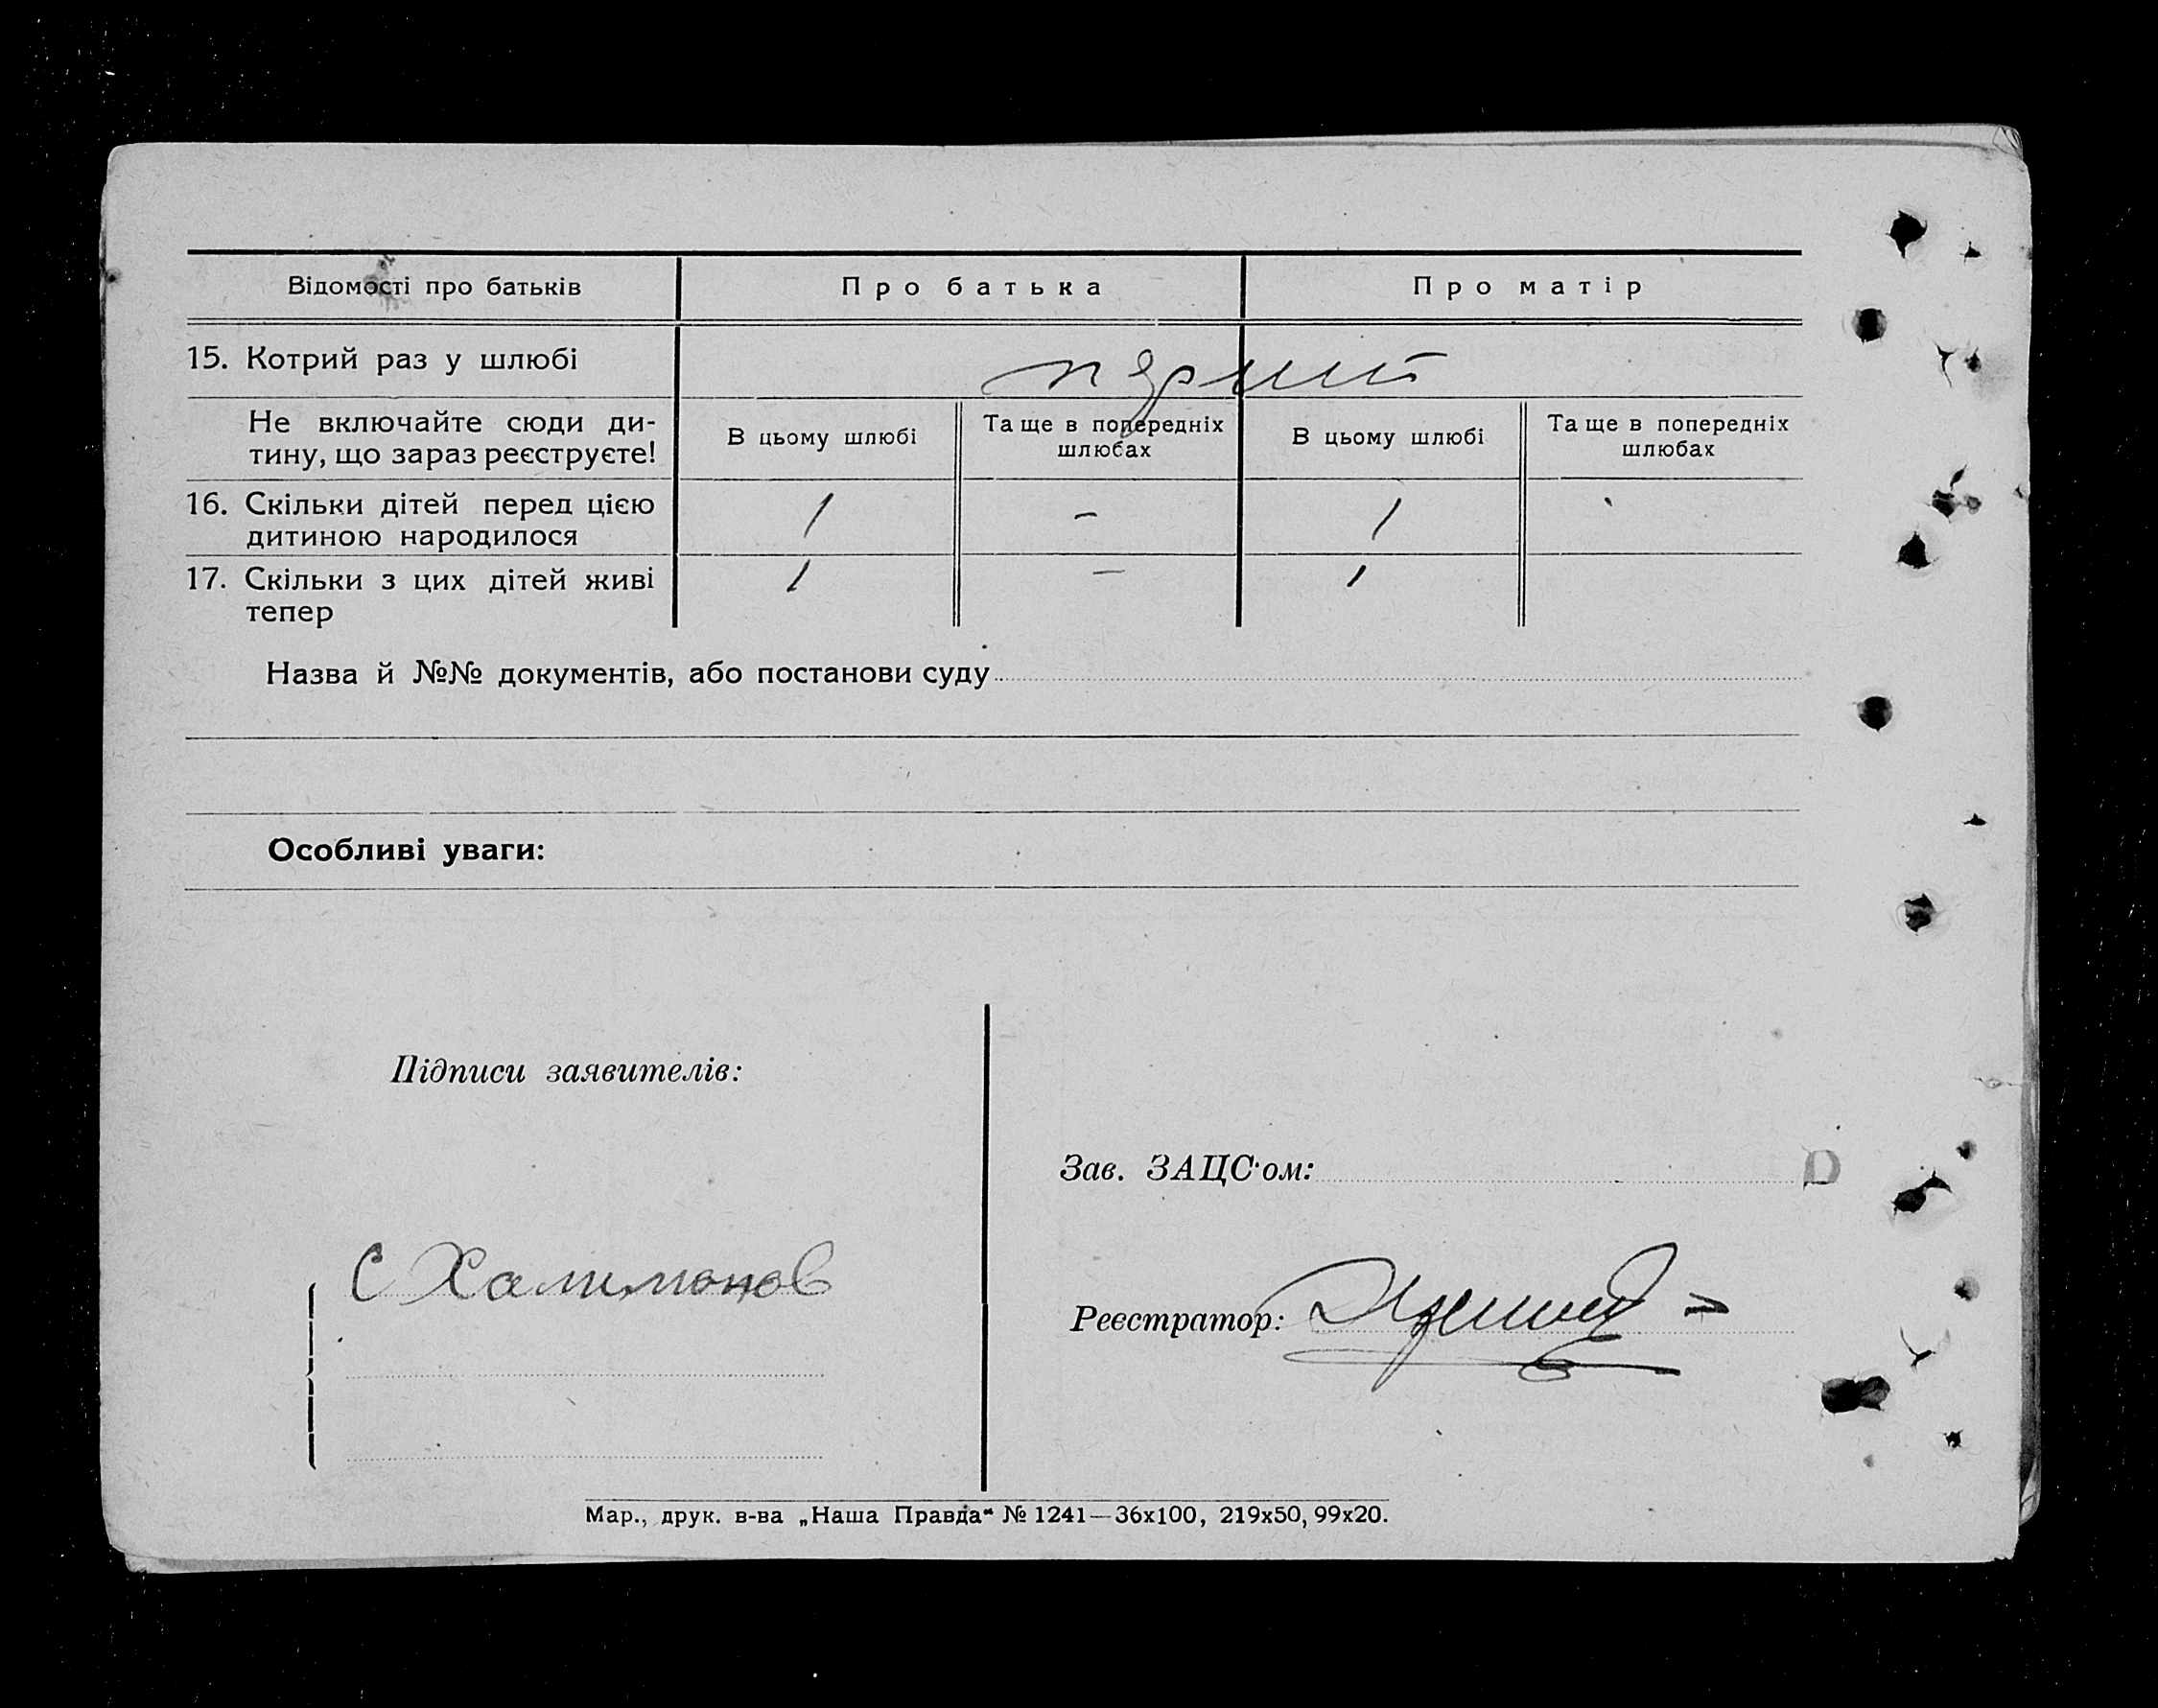 Відомості про батьків Про батька Про матір
15. Котрий раз у шлюбі перший
Не включайте сюди ди-
тину, що зараз реєструєте!
В цьому шлюбі Та ще в попередніх шлюбах В цьому шлюбі Та ще в попередніх шлюбах
16. Скільки дітей перед цією
дитиною народилося 1 – 1
17. Скільки з цих дітей живі
тепер 1 – 1
Назва й №№ документів, або постанови суду
Особливі уваги:
Підписи заявителів:
С Халимонов
Зав. ЗАЦС'ом:
Реєстратор:
Мар., друк. в-ва „Наша Правда“ № 1241—36х100, 219х50, 99х20.